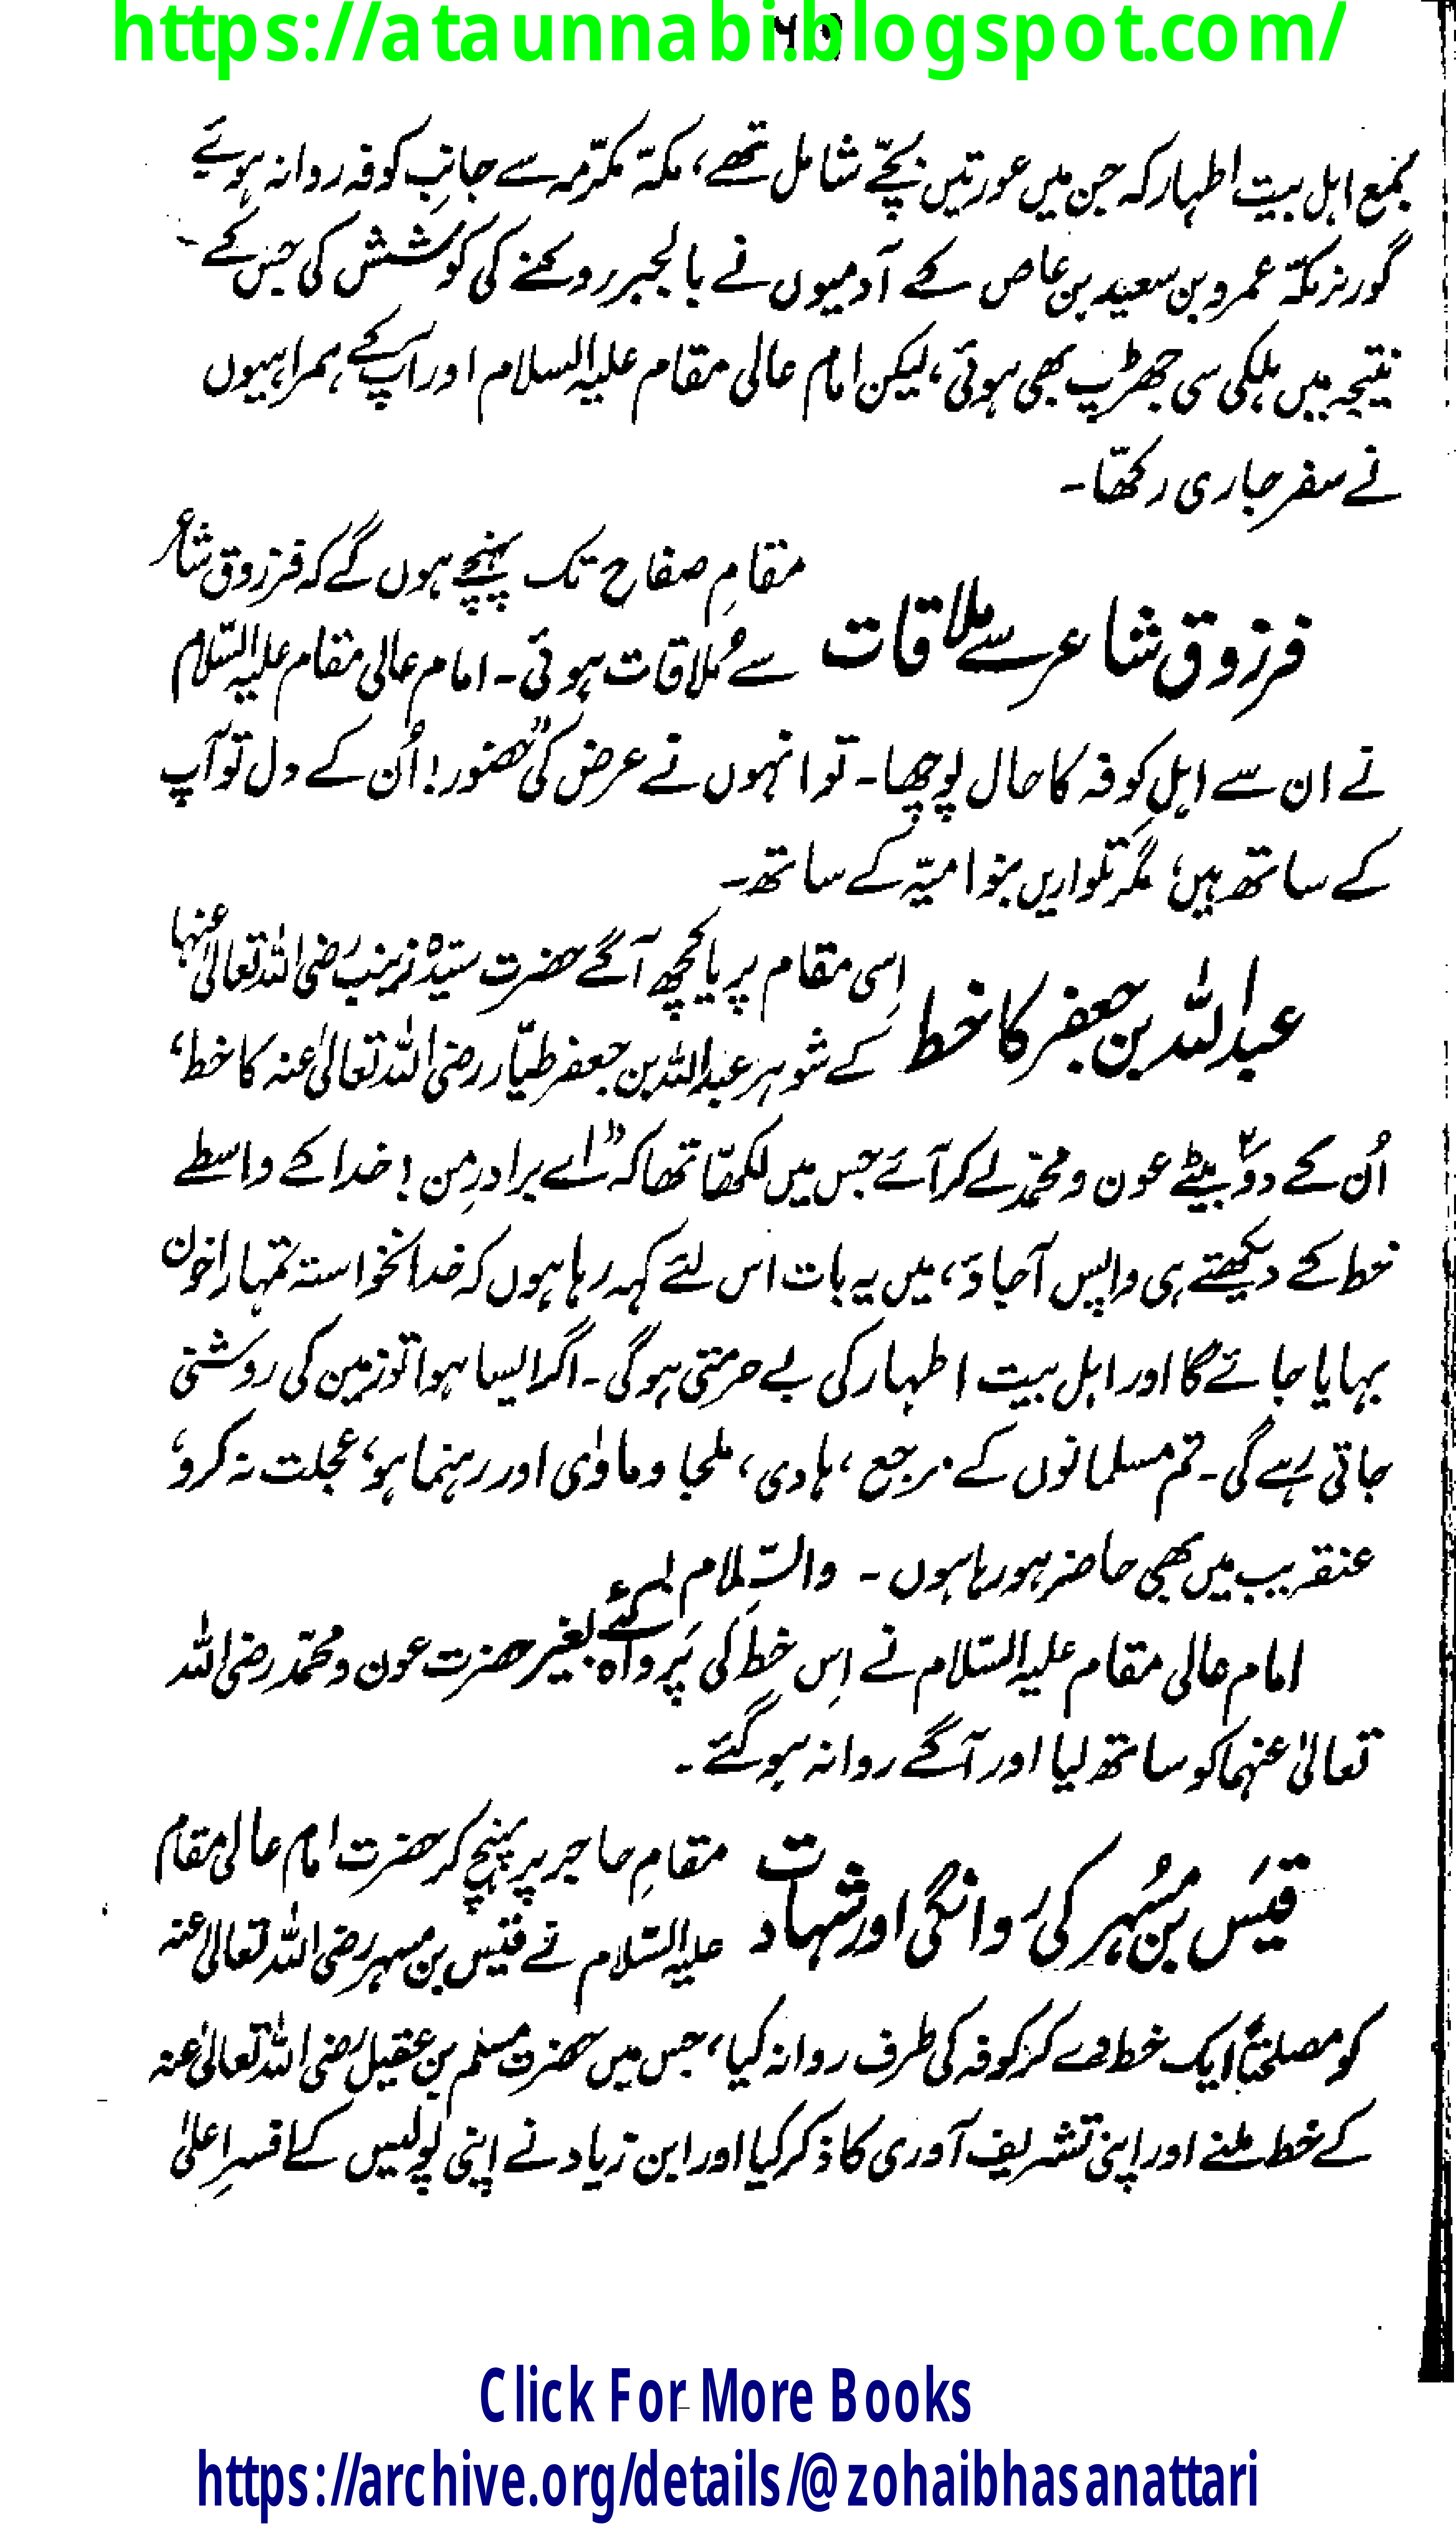 https://ataunnabi.blogspot.com/
بجمع اہل بیت اطہار کہ جن میں عورتیں بچّے شامل تھے، مکہّ مکرّمہ سے جانبِ کوفہ روانہ ہوئے
گورنر مکہّ عمرو بن سعید بن عاص کے آدمیوں نے بالجبر روکنے کی کوشش کی جس کے
نتیجہ میں ہلکی سی جھڑپ بھی ہوئی، لیکن امام عالی مقام علیہ السلام اور آپ کے ہمراہیوں
نے سفر جاری رکھّا۔
فرزوق شاعر سے ملاقات
مقامِ صفاح تک پہنچے ہوں گے کہ فرزوق شاعر
سے مُلاقات ہوئی۔ امام عالی مقام علیہ السّلام
نے ان سے اہلِ کوفہ کا حال پوچھا۔ تو انہوں نے عرض کی "حضور! اُن کے دل تو آپ
کے ساتھ ہیں، مگر تلواریں بنو امیّہ کے ساتھ۔
عبداللہ بن جعفر کا خط
اِسی مقام پر یا کچھ آگے حضرت سیّدہ زینب رضی اللہ تعالیٰ عنہا
کے شوہر عبداللہ بن جعفر طیّار رضی اللہ تعالیٰ عنہ کا خط،
اُن کے دوّ۲ بیٹے عون و محمّد لے کر آئے جس میں لکھّا تھا کہ "اے برادرِ من! خدا کے واسطے
خط کے دیکھتے ہی واپس آجاؤ، میں یہ بات اس لئے کہہ رہا ہوں کہ خدانخواستہ تمہارا خون
بہایا جائے گا اور اہل بیت اطہار کی بے حرمتی ہوگی۔ اگر ایسا ہوا تو زمین کی روشنی
جاتی رہے گی۔ تم مسلمانوں کے مرجع، ہادی، ملجا و ماوٰی اور رہنما ہو، عجلت نہ کرو،
عنقریب میں بھی حاضر ہو رہا ہوں۔ والسّلام
امام عالی مقام علیہ السّلام نے اِس خط کی پَرواہ کئے بغیر حضرت عون و محمّد رضی اللہ
تعالیٰ عنہما کو ساتھ لیا اور آگے روانہ ہو گئے۔
قیَس بن مسُہر کی روانگی اور شہادت
مقامِ حاجر پر پہنچ کر حضرت امام عالی مقام
علیہ السّلام نے قیس بن مسہر رضی اللہ تعالیٰ عنہ
کو مصلحتاً ایک خط دے کر کوفہ کی طرف روانہ کیا، جس میں حضرت مسلم بن عقیل رضی اللہ تعالیٰ عنہ
کے خط ملنے اور اپنی تشریف آوری کا ذکر کیا اور ابن زیاد نے اپنی پولیس کے افسرِ اعلیٰ
Click For More Books
https://archive.org/details/@zohaibhasanattari